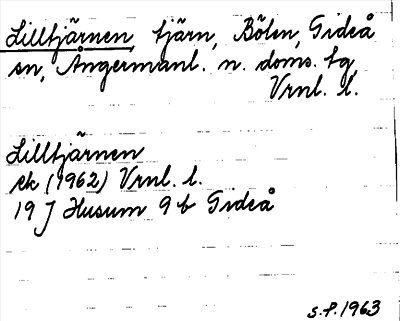 Lilltjärnen, tjärn, Bölen, Gideå
sn, Ångermanl. n. doms. tg,
Vrnl. l.
Lilltjärnen
ek (1962) Vrnl. l.
19 J Husum 9 b Gideå
S.P. 1963